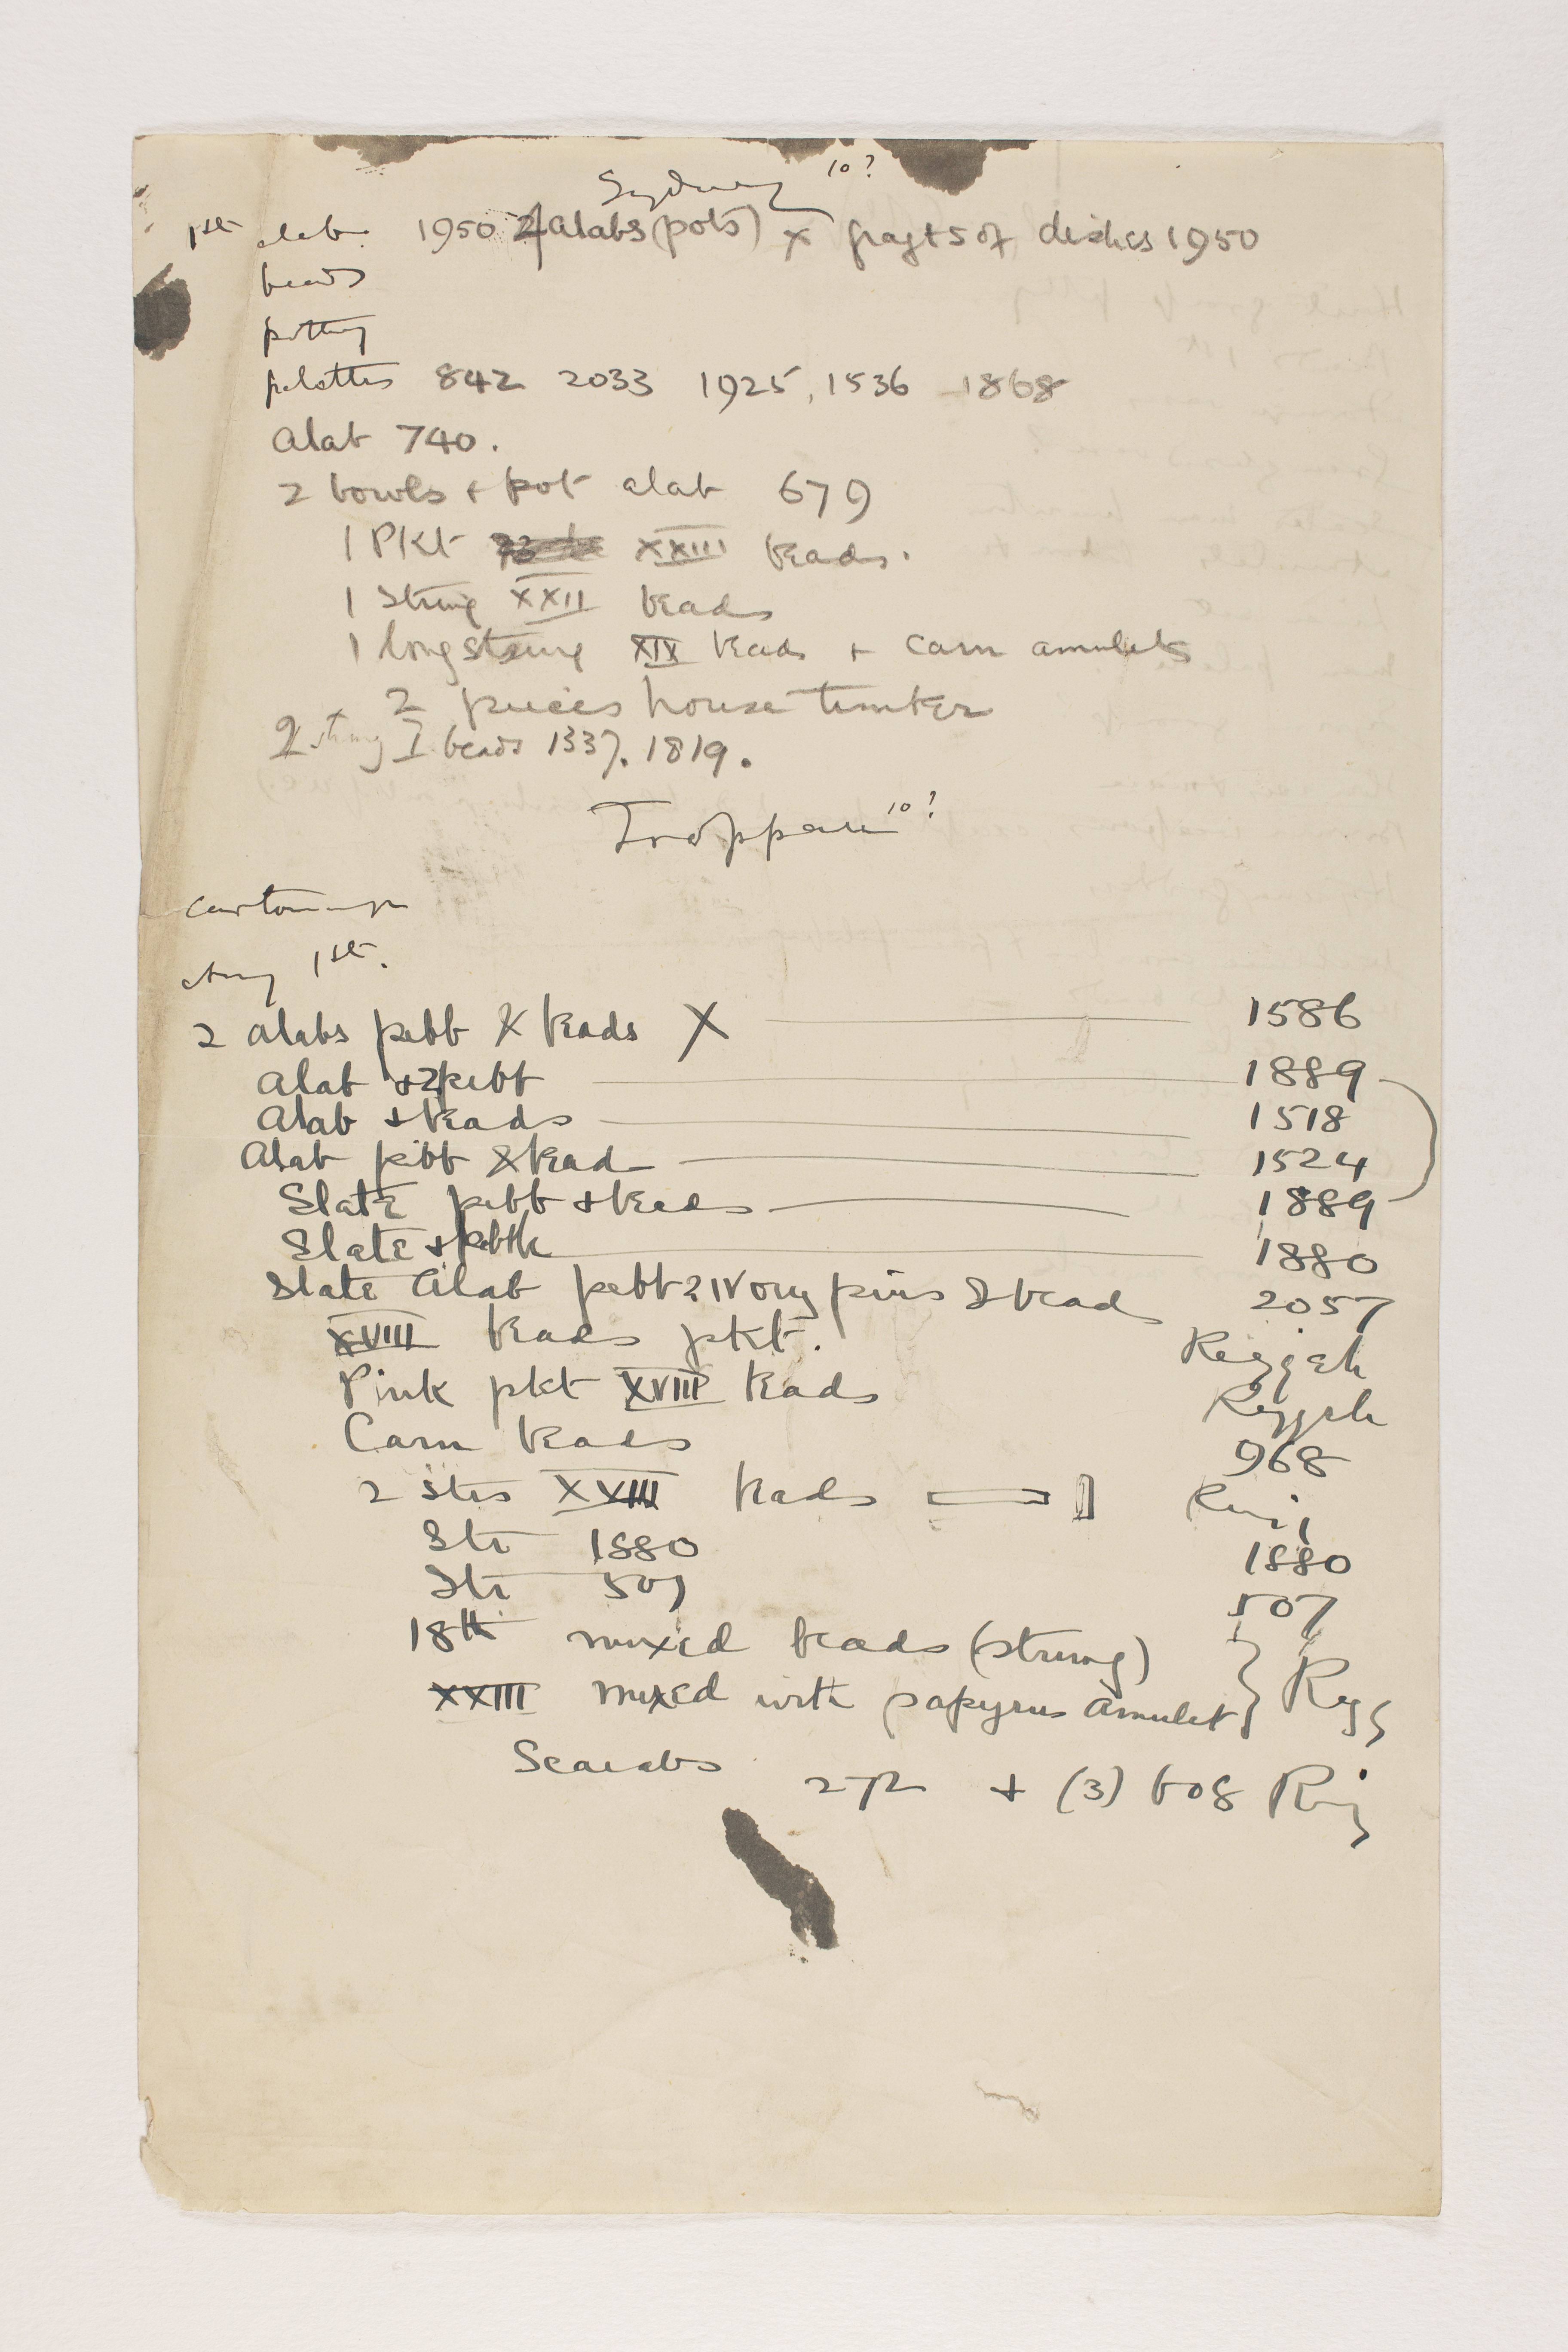 Sydney 10?
1st alab. 1950 24 alabs (pots) x fragts of dishes 1950
beads
pottery
palettes 842 2033 1925, 1536 1868
Alab 740.
2 bowls + pot alab 679
1 Pkt XXIII beads.
1 String XXII beads
1 long string XIX beads + carn amulets
2 pieces house timber
2 string I beads 1337. 1819.
Troppau 10?
cartonnage
any 1st.
2 alabs pebb & beads X 1586
Alab + 2 pebb 1889
Alab + beads 1518
Alab pebb & bead 1524
Slate pebb + beads 1889
Slate + pebb 1880
Slate Alab pebb 2 ivory pins & bead 2057
XVIII beads pkt. Reqqeh
Pink pkt XVIII beads Reqqeh
Carn beads 968
2 strs XXIII beads
Str 1880 1880
Str 507 507
18th mixed beads (string)
XXIII mixed with papyrus amulet } Reqq
Scarabs 272 + (3) 608